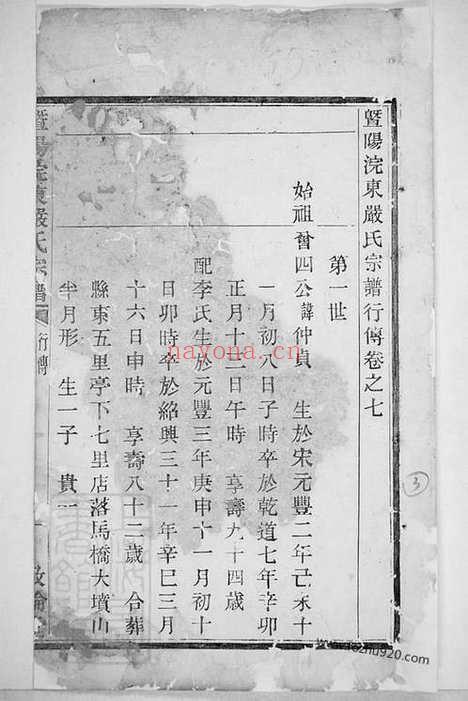 暨陽浣東嚴氏宗譜行傳卷之七
第一世
始祖曾四公諱仲貞 生於宋元豐二年己未十
一月初八日子時卒於乾道七年辛卯
正月十二日午時 享壽九十四歲
配李氏生於元豐三年庚申十一月初十
日卯時卒於紹興三十一年辛巳三月
十六日申時 享壽八十二歲 合葬
縣東五里亭下七里店落馬橋大墳山
半月形 生一子 貴一
暨陽浣東嚴氏宗譜 行傳 一 敦倫
3
nayona.cn
www.jiazhu920.com